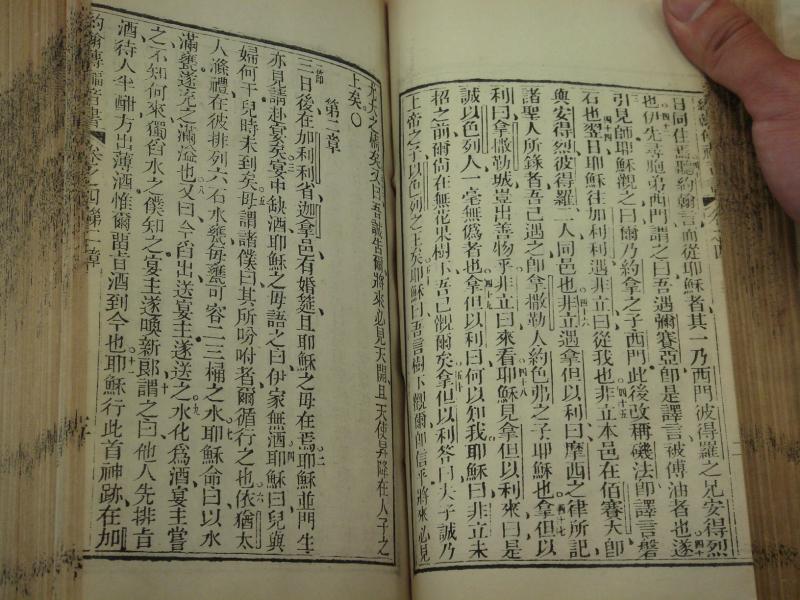 日同住焉聽約翰言而從耶穌者其一乃西門彼得羅之兄安得烈
也伊先尋胞弟西門謂之曰吾遇彌賽亞卽是譯言被傅油者也遂
引見師耶穌觀之曰爾乃約拿之子西門此後改稱磯法卽譯言磐
石也翌日耶穌往加利利遇非立曰從我也非立本邑在佰賽大卽
與安得烈彼得羅二人同邑也非立遇拿但以利曰摩西之律所記
諸聖人所錄者吾已遇之卽拿撒勒人約色弗之子耶穌也拿但以
利曰拿撒勒城豈出善物乎非立曰來看耶穌見拿但以利來曰是
誠以色列人一毫無僞者也拿但以利曰何以知我耶穌曰非立未
招之前爾尙在無花果樹下吾已覩爾矣拿但以利答曰夫子誠乃
上帝之子以色列之王矣耶穌曰吾言樹下覩爾卽信乎將來必見
之矣又曰吾誠告爾將來必見天開且天使昇降在人子之
上矣
第二章
三日後在加利利省迦拿邑有婚筵且耶穌之母在焉耶穌並門生
亦見請赴宴矣宴中缺酒耶穌之母語之曰伊家無酒耶穌曰兒與
婦何干兒時未到矣母謂諸僕曰其所吩咐者爾循行之也依猶太
人滌禮在彼排列六石水甕每甕可容二三桶之水耶穌命曰以水
滿甕遂充之滿溢也又曰今舀出送宴主遂送之水化爲酒宴主嘗
之不知何來獨舀水之僕知之宴主遂喚新郞謂之曰他人先排旨
酒待人半酣方出薄酒惟爾留旨酒到今也耶穌行此首神跡在加
約翰傳福音書 卷之四 第二章